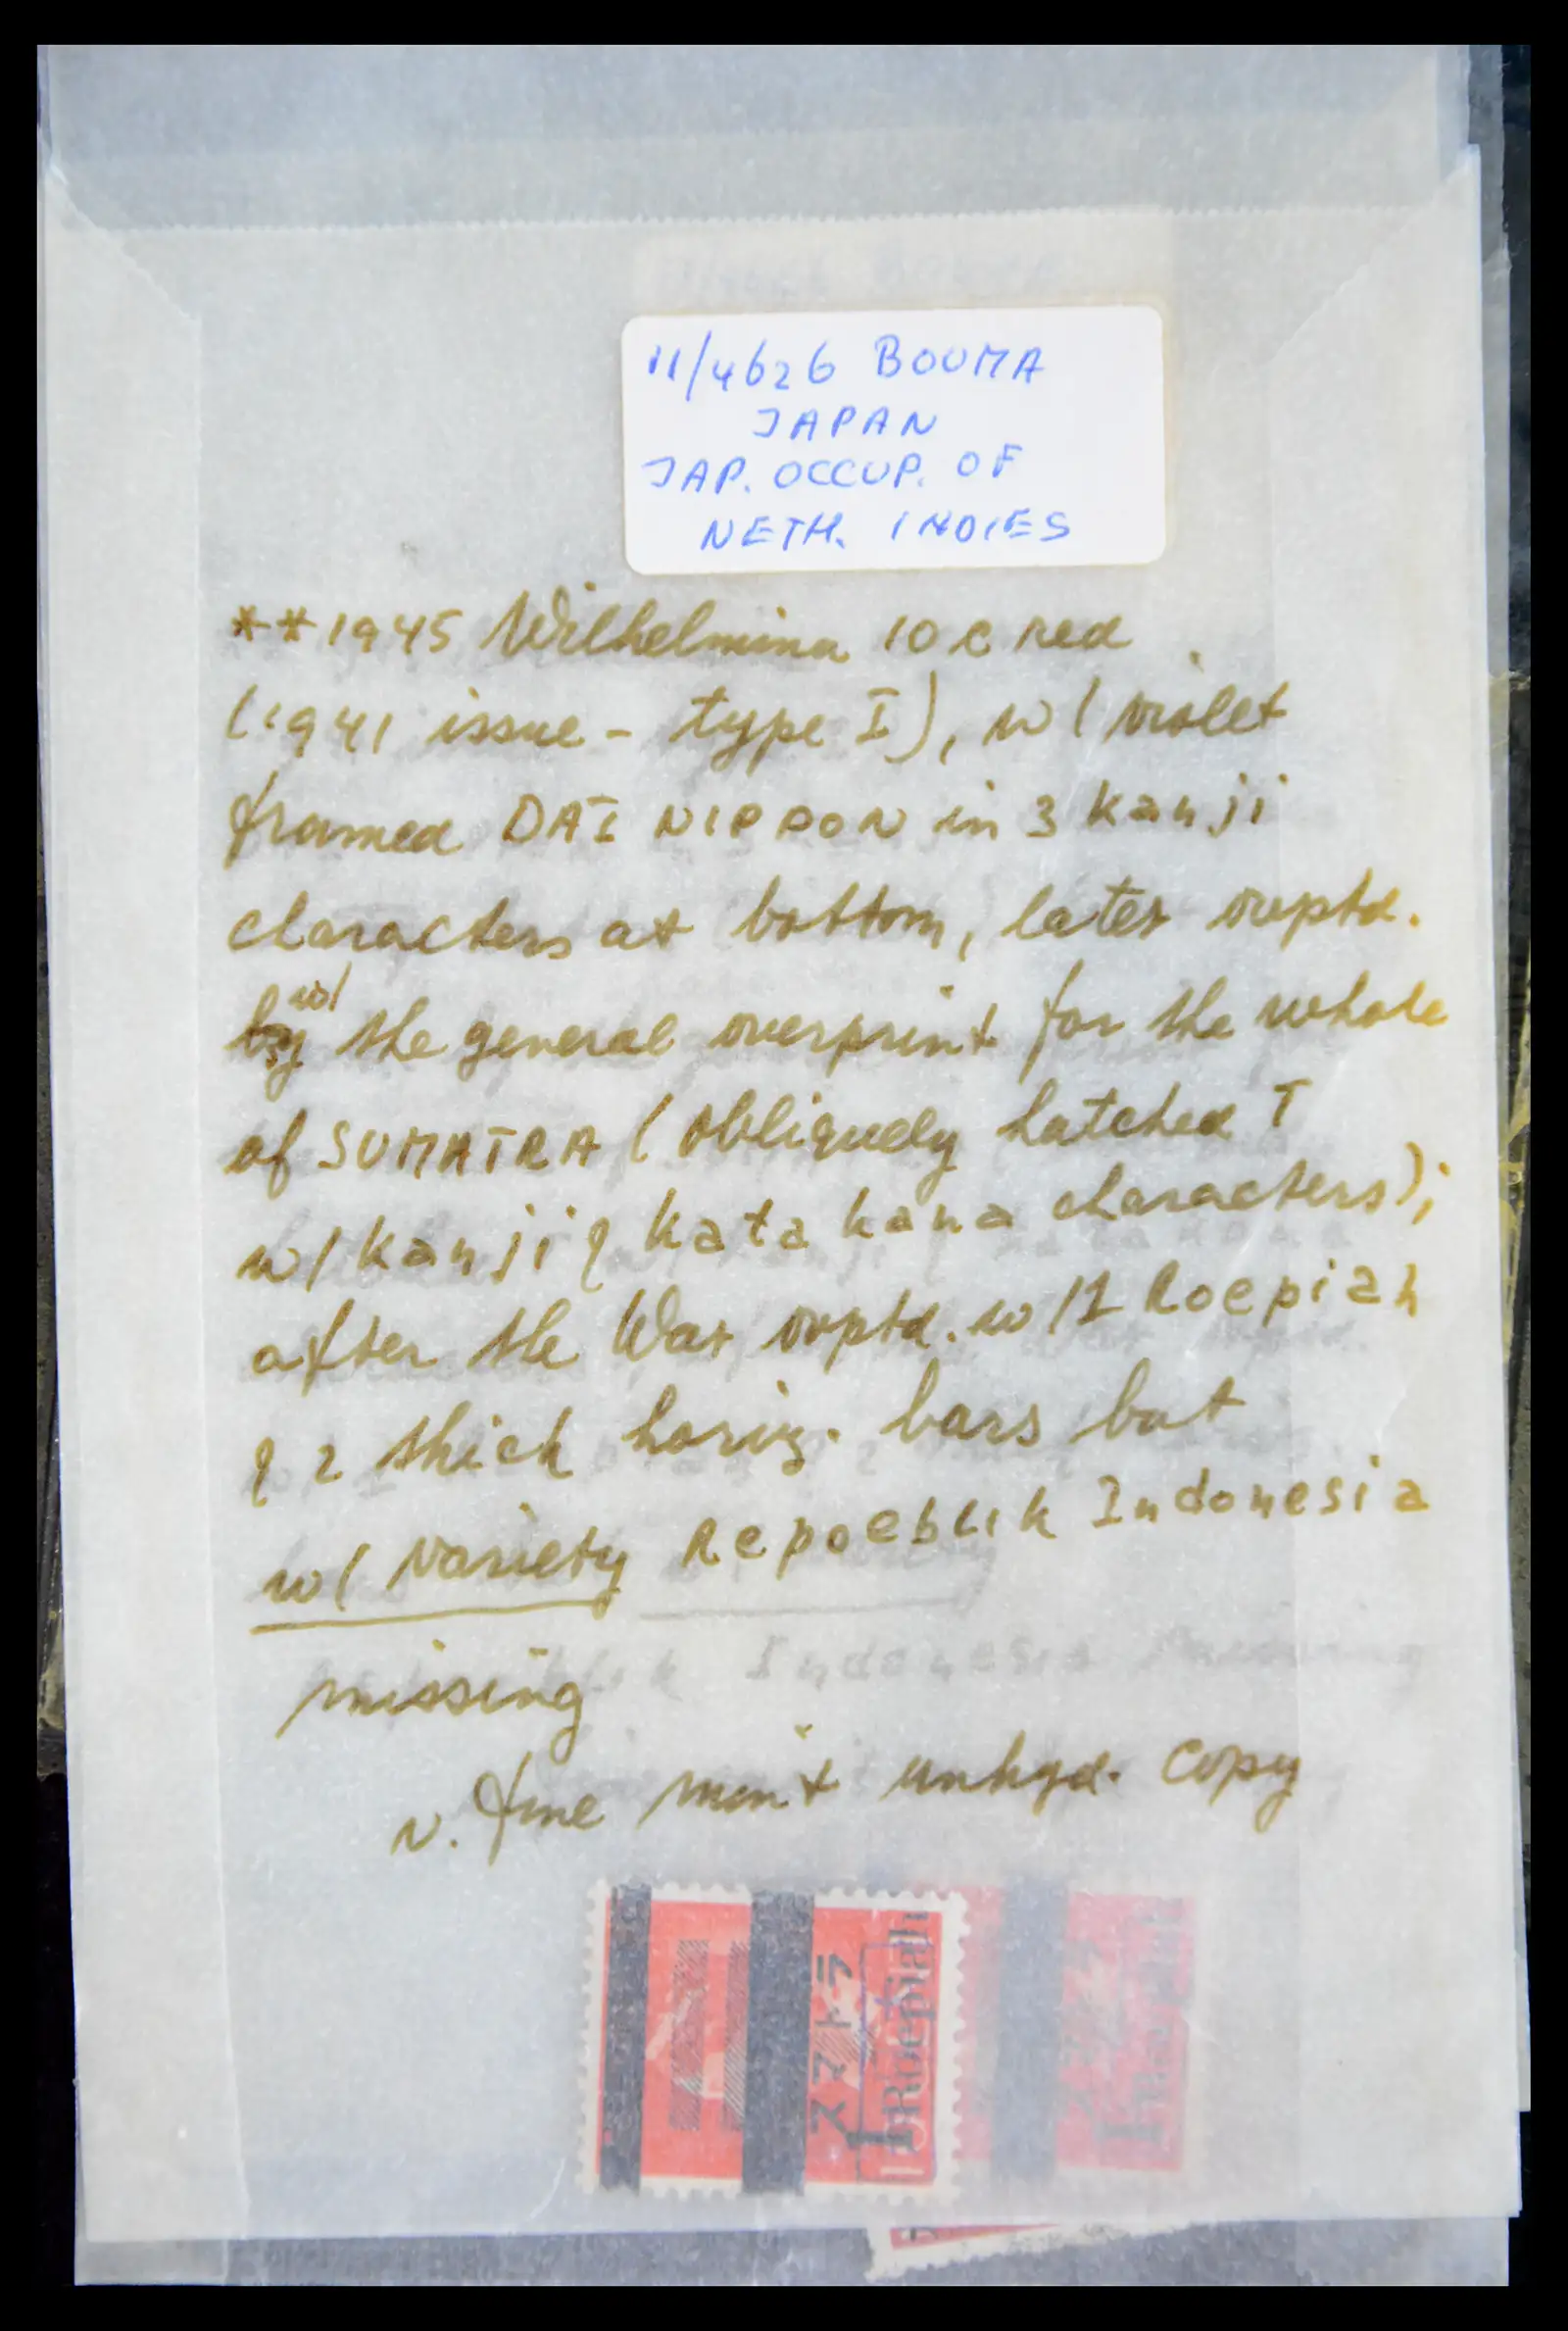 11/4626 BOUMA
JAPAN
JAP. OCCUP. OF
NETH. INDIES
**1945 Wilhelmina 10 c red
(1941 issue - type I), w/ violet
framed DAI NIPPON in 3 kanji
characters at bottom, later ovptd.
w/ the general overprint for the whole
of SUMATRA (obliquely hatched T
w/ kanji & kata kana characters);
after the War ovptd. w/ 1 Roepiah
& 2 thick horiz. bars but
w/ variety Repoeblik Indonesia
missing
v. fine mint unhgd. copy
スマトラ
1 Roepiah